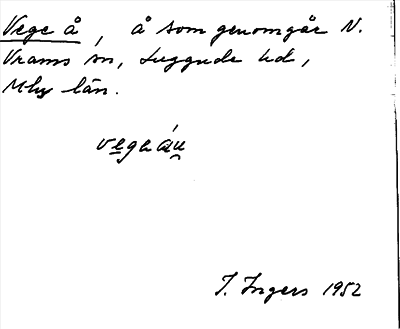 Vege å, å som genomgår N.
Vrams sn, Luggude hd,
Mhs län.
vegeáu
I. Ingers 1952